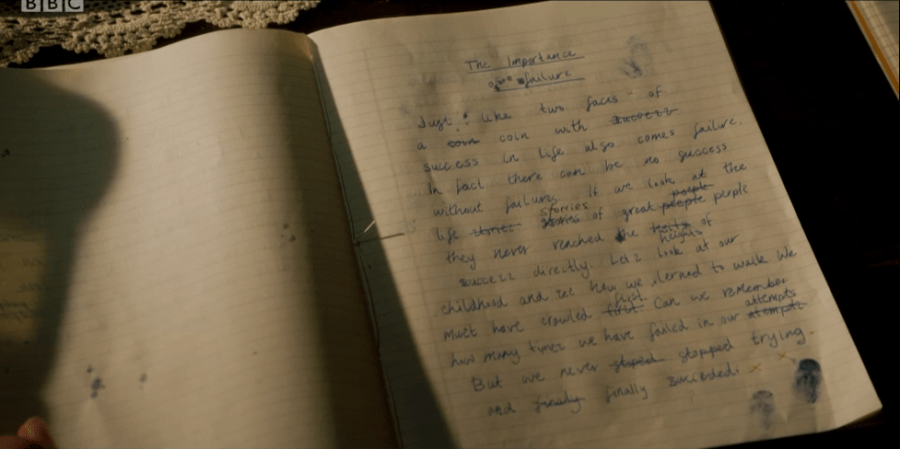 BBC
The Importance
failure
Just like two faces of
a coin coin with success
success in life also comes failure.
In fact there can be no success
without failure. If we look at the
people
life stories stories of great people people
storries
they never reached the heights of
heights
success directly. Let's look at our
childhood and see how we lerned to walk We
must have crawled first Can we remember
first
how many times we have failed in our attempts
attempts
But we never stoped stopped trying.
and finally finally succeded.